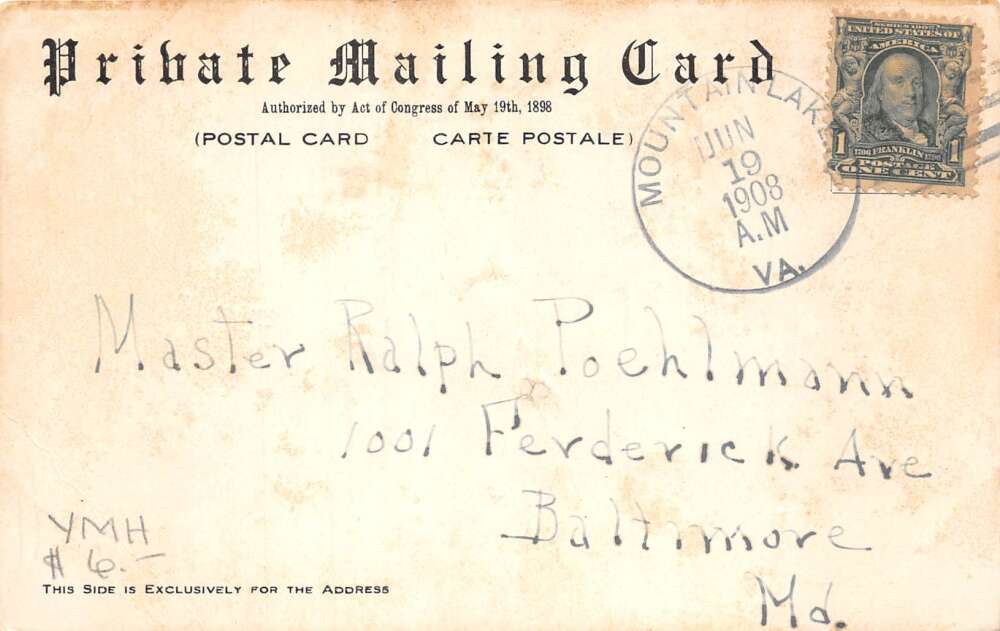 Private Mailing Card
Authorized by Act of Congress of May 19th, 1898
(POSTAL CARD CARTE POSTALE)
MOUNTAIN LAKE
JUN
19
1908
A.M
VA.
SERIES 1902
UNITED STATES OF
AMERICA
1706 FRANKLIN 1790
1 POSTAGE 1
ONE CENT
Master Ralph Poehlmann
1001 Ferderick Ave
Baltimore
Md.
YMH
$6.-
THIS SIDE IS EXCLUSIVELY FOR THE ADDRESS